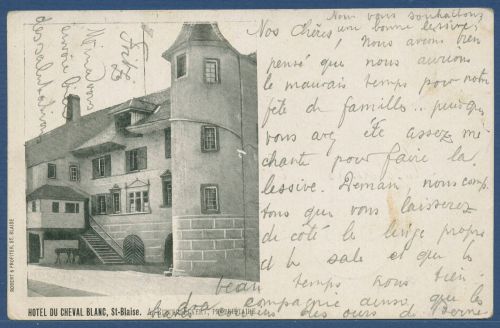 Nous vous souhaitons
Nos chères! une bonne lessive
Nous avons bien
pensé, que nous aurions
le mauvais temps pour notre
fête de famille.. puisque
vous avez été assez mé-
chante pour faire la
lessive. Demain, nous comp-
tons que vous laisserez
de côté le linge propre
& le sale et que le
beau temps nous tien-
dra compagnie ainsi que les
ours de Berne
Fritz
Mina vous
envoie bien
des salutations
ROBERT & PROFITER, ST. BLAISE
HOTEL DU CHEVAL BLANC, St-Blaise.
PROPRIETAIRE